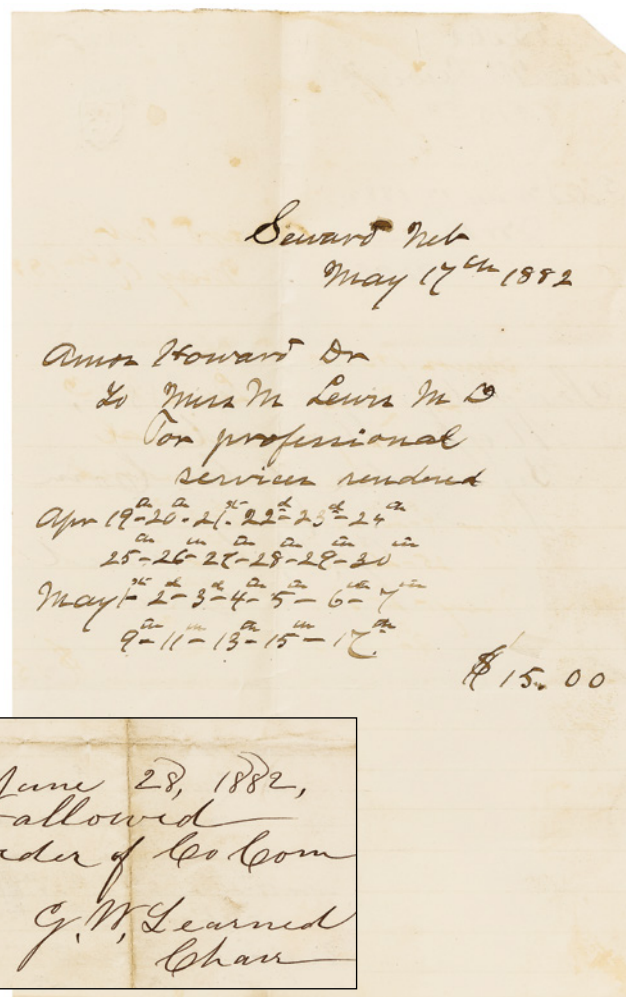 Seward Neb
May 17th 1882
Amos Howard Dr
To Miss M Lewis M D
For professional
services rendered
Apr 19th-20th-21st-22d-23d-24th
25th-26th-27th-28th-29th-30th
May 1st-2d-3d-4th-5th-6th-7th
9th-11th-13th-15th-17th
$ 15.00
June 28, 1882,
allowed
of Co Com
G. W. Learned
Chair